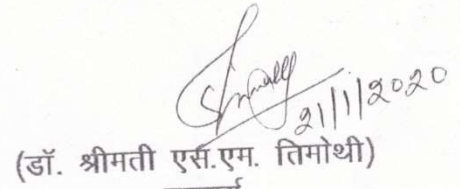 21/1/2020
(डॉ. श्रीमती एस.एम. तिमोथी)